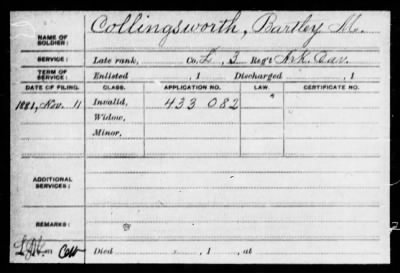 Collingsworth, Bartley M.
NAME OF SOLDIER:
SERVICE: Late rank, Co. L, 3 Reg't Ark. Cav.
TERM OF SERVICE: Enlisted , 1 Discharged , 1
DATE OF FILING. CLASS. APPLICATION NO. LAW. CERTIFICATE NO.
1881, Nov. 11 Invalid, 433 082
Widow,
Minor,
ADDITIONAL SERVICES:
REMARKS:
Died , 1 , at